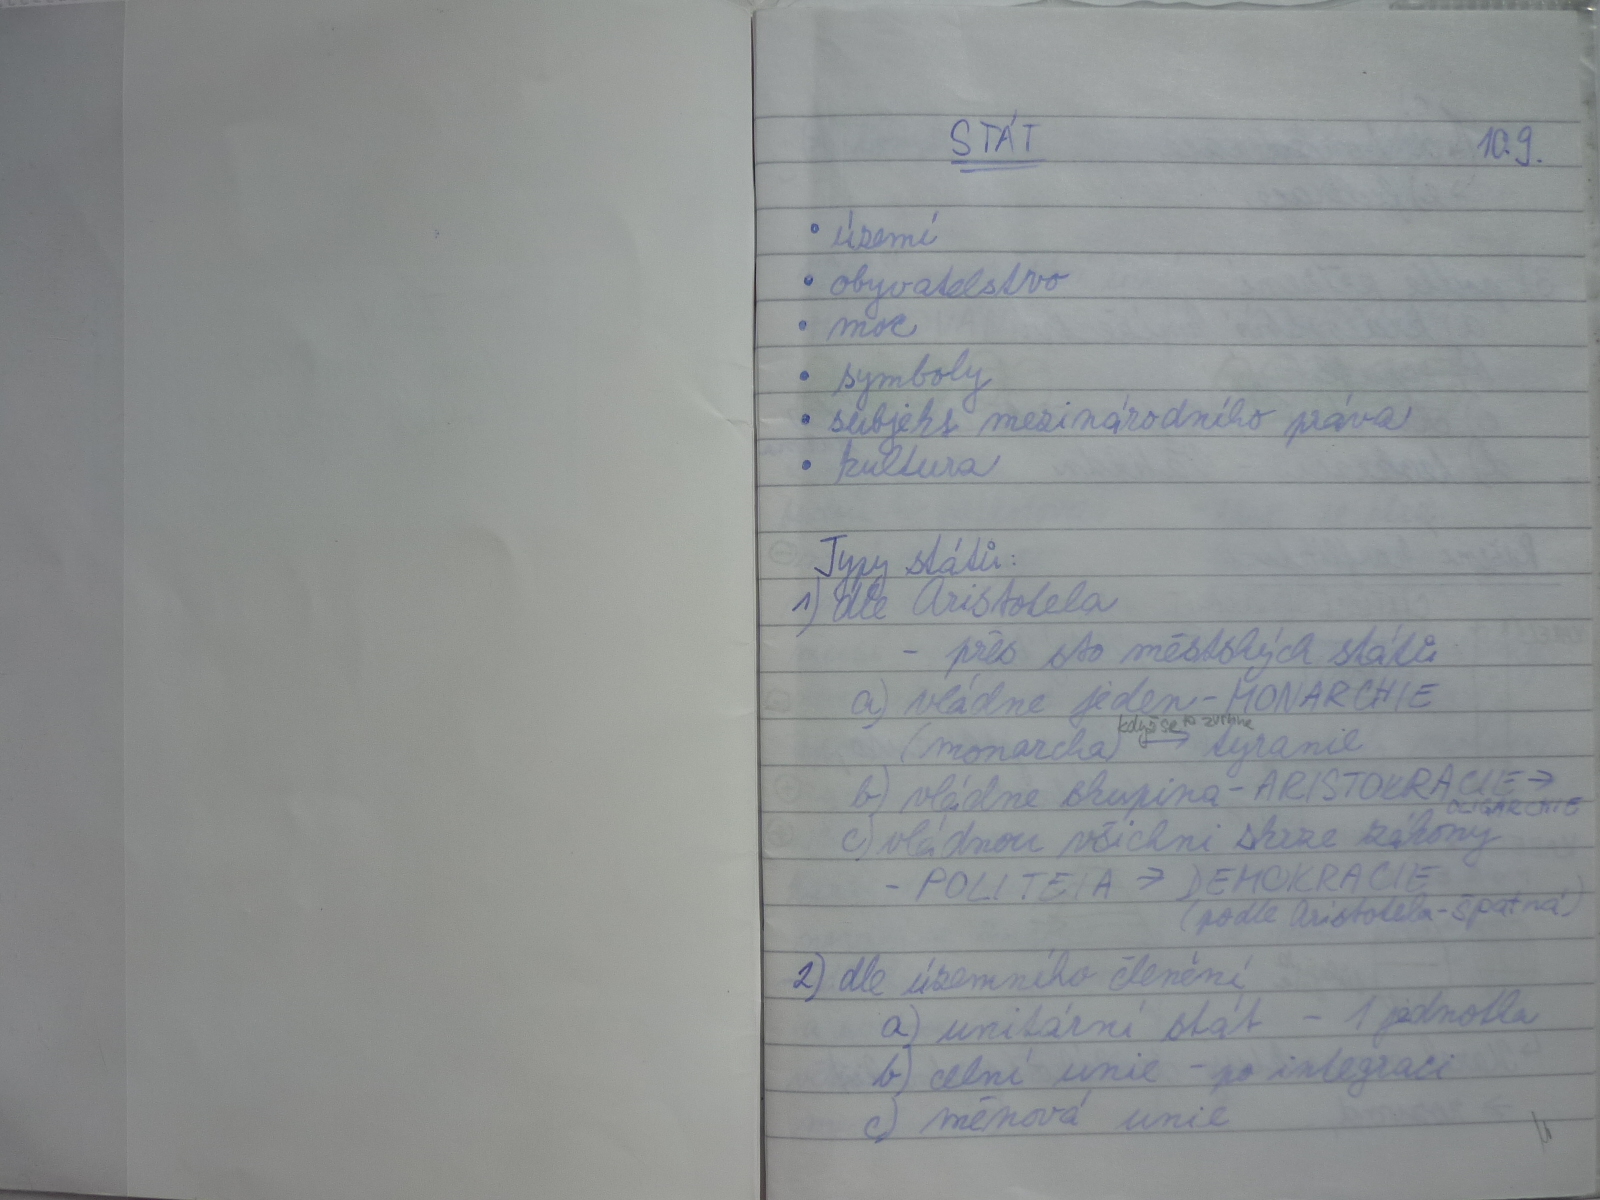 STÁT 10.9.
• území
• obyvatelstvo
• moc
• symboly
• subjekt mezinárodního práva
• kultura
Typy států:
1) dle Aristotela
- přes sto městských států
a) vládne jeden - MONARCHIE
když se to zvrhne
(monarcha) → tyranie
b) vládne skupina - ARISTOKRACIE →
OLIGARCHIE
c) vládnou všichni skrze zákony
- POLITEIA → DEMOKRACIE
(podle Aristotela - špatná)
2) dle územního členění
a) unitární stát - 1 jednotka
b) celní unie - po integraci
c) měnová unie